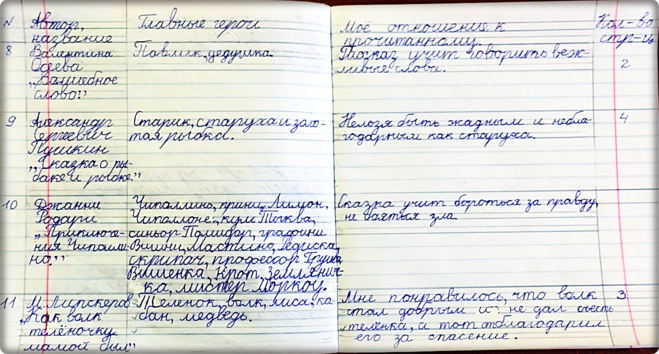 N Автор, название Главные герои Моё отношение к прочитанному. Кол-во стр-иц
8 Валентина Осеева „Волшебное слово." Павлик, дедушка. Рассказ учит говорить веж-
ливые слова. 2
9 Александр Сергеевич Пушкин „Сказка о ры-
баке и рыбке" Старик, старуха и золо-
тая рыбка. Нельзя быть жадным и небла-
годарным как старуха. 4
10 Джанни Родари „Приключе-
ния Чиполли-
но." Чиполлино, принц Лимон,
Чиполлоне, кум Тыква,
синьор Помидор, графини
Вишни, Мастино, Редиска,
скрипач, профессор Груша
Вишенка, Крот, Землянич-
ка, мистер Моркоу. Сказка учит бороться за правду,
не бояться зла.
11 М. Липскеров „Как волк
телёночку
мамой был" Теленок, волк, лиса, ка-
бан, медведь. Мне понравилось, что волк
стал добрым и не дал съесть
телёнка, а тот отблагодарил
его за спасение. 3